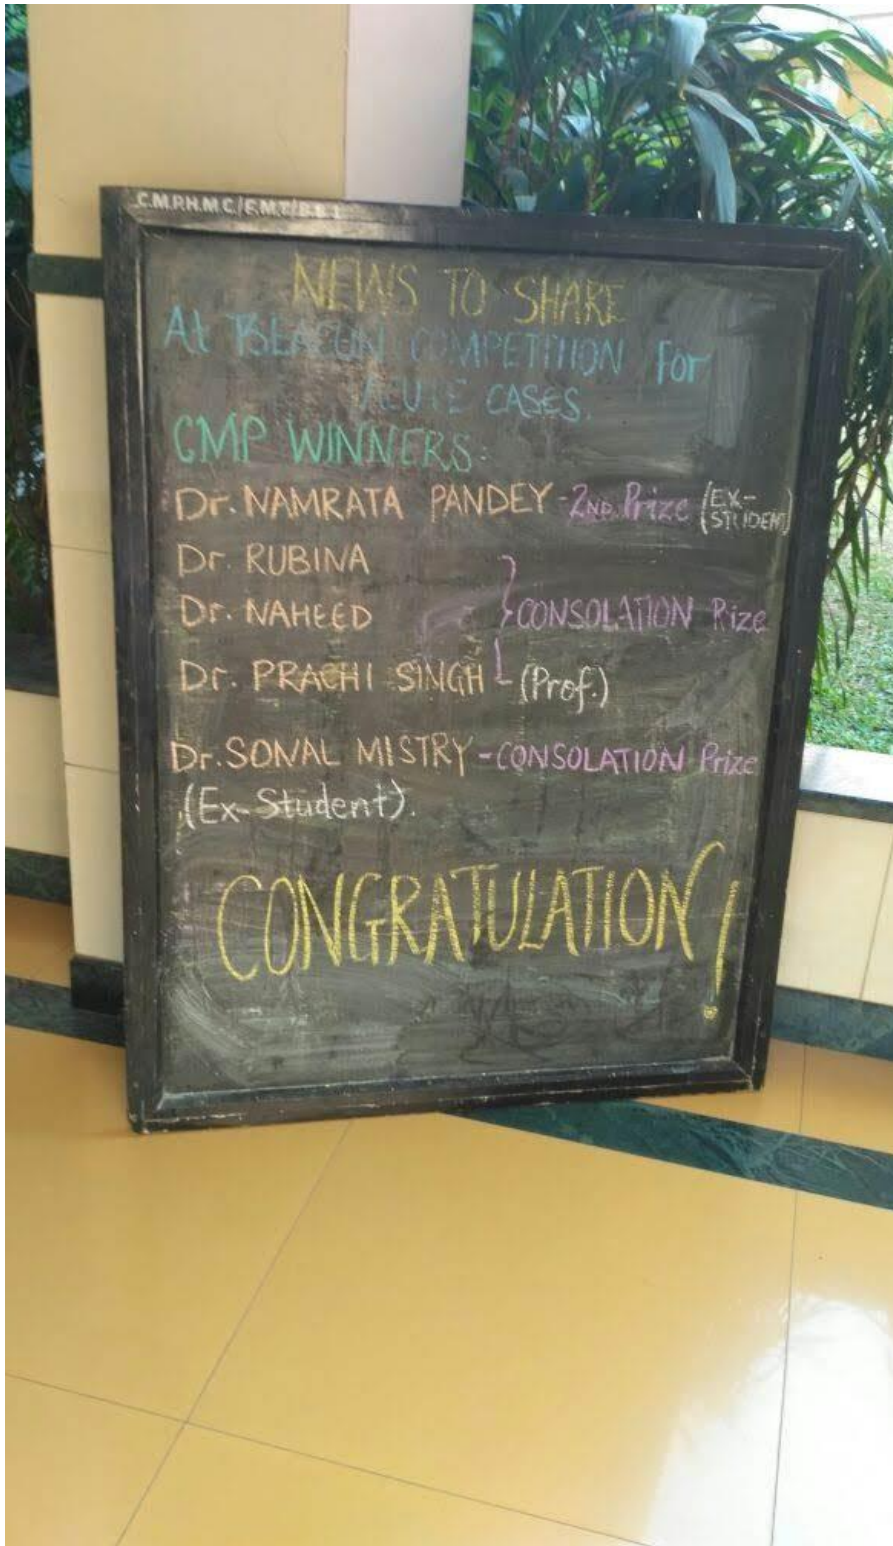 C.M.P.H.M.C/E.M.T/
NEWS TO SHARE
At BEACON COMPETITION For
ACUTE CASES.
CMP WINNERS:
Dr. NAMRATA PANDEY - 2ND Prize (EX-STUDENT)
Dr. RUBINA
Dr. NAHEED } CONSOLATION Rize
Dr. PRACHI SINGH - (Prof.)
Dr. SONAL MISTRY - CONSOLATION Prize
(Ex-Student).
CONGRATULATION!